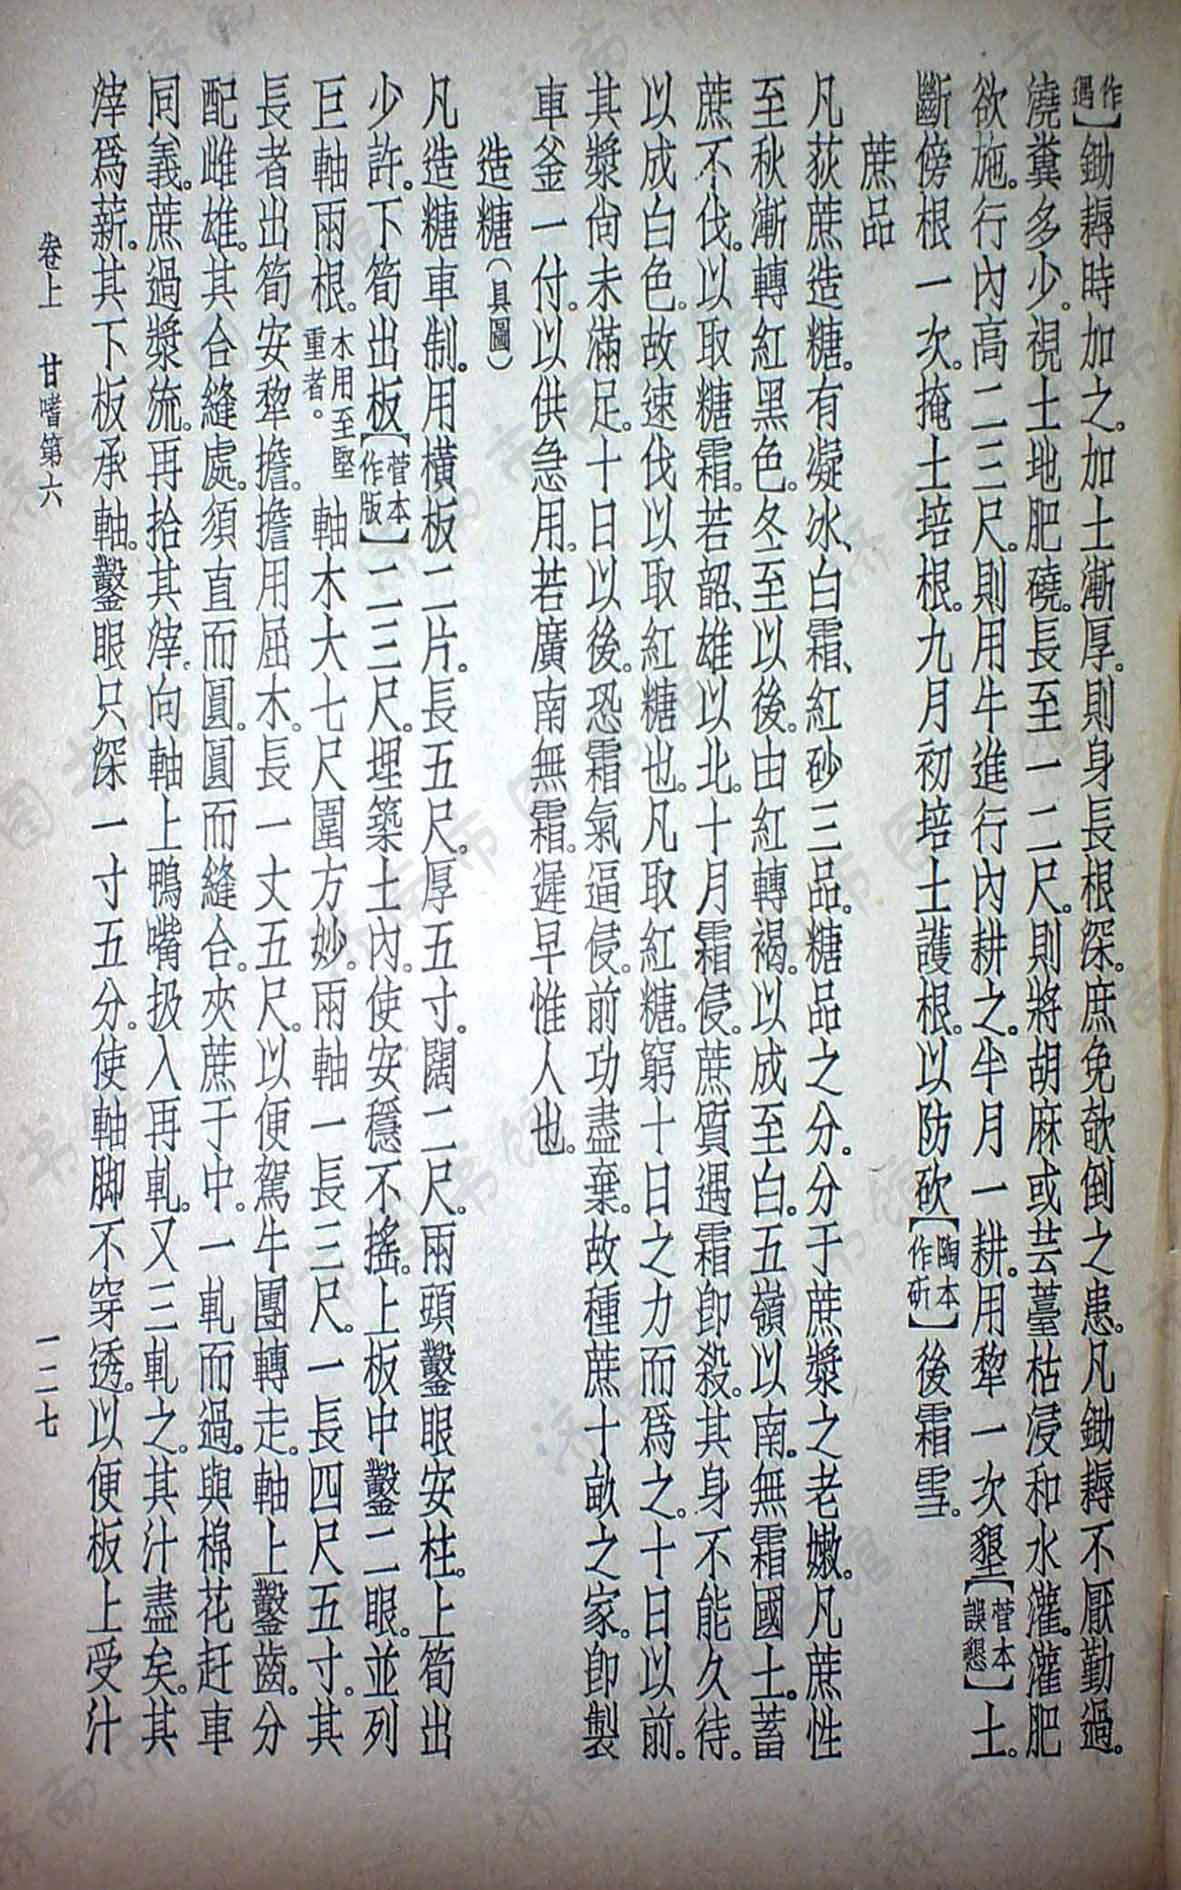 作遇】鋤耨時加之。加土漸厚。則身長根深。庶免欹倒之患。凡鋤耨不厭勤過。
澆糞多少。視土地肥磽。長至一二尺。則將胡麻或芸薹枯浸和水灌。灌肥
欲施。行內高二三尺。則用牛進行內耕之。半月一耕。用犂一次墾【菅本誤懇】土。
斷傍根一次。掩土培根。九月初培土護根。以防砍【陶本作斫】後霜雪。
蔗品
凡荻蔗造糖。有凝冰、白霜、紅砂三品。糖品之分。分于蔗漿之老嫩。凡蔗性
至秋漸轉紅黑色。冬至以後。由紅轉褐。以成至白。五嶺以南。無霜國土。蓄
蔗不伐。以取糖霜。若韶、雄以北。十月霜侵。蔗質遇霜卽殺。其身不能久待。
以成白色。故速伐以取紅糖也。凡取紅糖。窮十日之力而爲之。十日以前。
其漿尙未滿足。十日以後。恐霜氣逼侵。前功盡棄。故種蔗十畝之家。卽製
車釜一付。以供急用。若廣南無霜。遲早惟人也。
造糖(具圖)
凡造糖車制。用橫板二片。長五尺。厚五寸。闊二尺。兩頭鑿眼安柱。上筍出
少許。下筍出板【菅本作版】二三尺。埋築土內。使安穩不搖。上板中鑿二眼。並列
巨軸兩根。木用至堅重者。軸木大七尺圍方妙。兩軸一長三尺。一長四尺五寸。其
長者出筍安犂擔。擔用屈木。長一丈五尺。以便駕牛團轉走。軸上鑿齒。分
配雌雄。其合縫處。須直而圓。圓而縫合。夾蔗于中。一軋而過。與棉花赶車
同義。蔗過漿流。再拾其滓。向軸上鴨嘴扱入再軋。又三軋之。其汁盡矣。其
滓爲薪。其下板承軸。鑿眼只深一寸五分。使軸脚不穿透。以便板上受汁
卷上 甘嗜第六 一二七